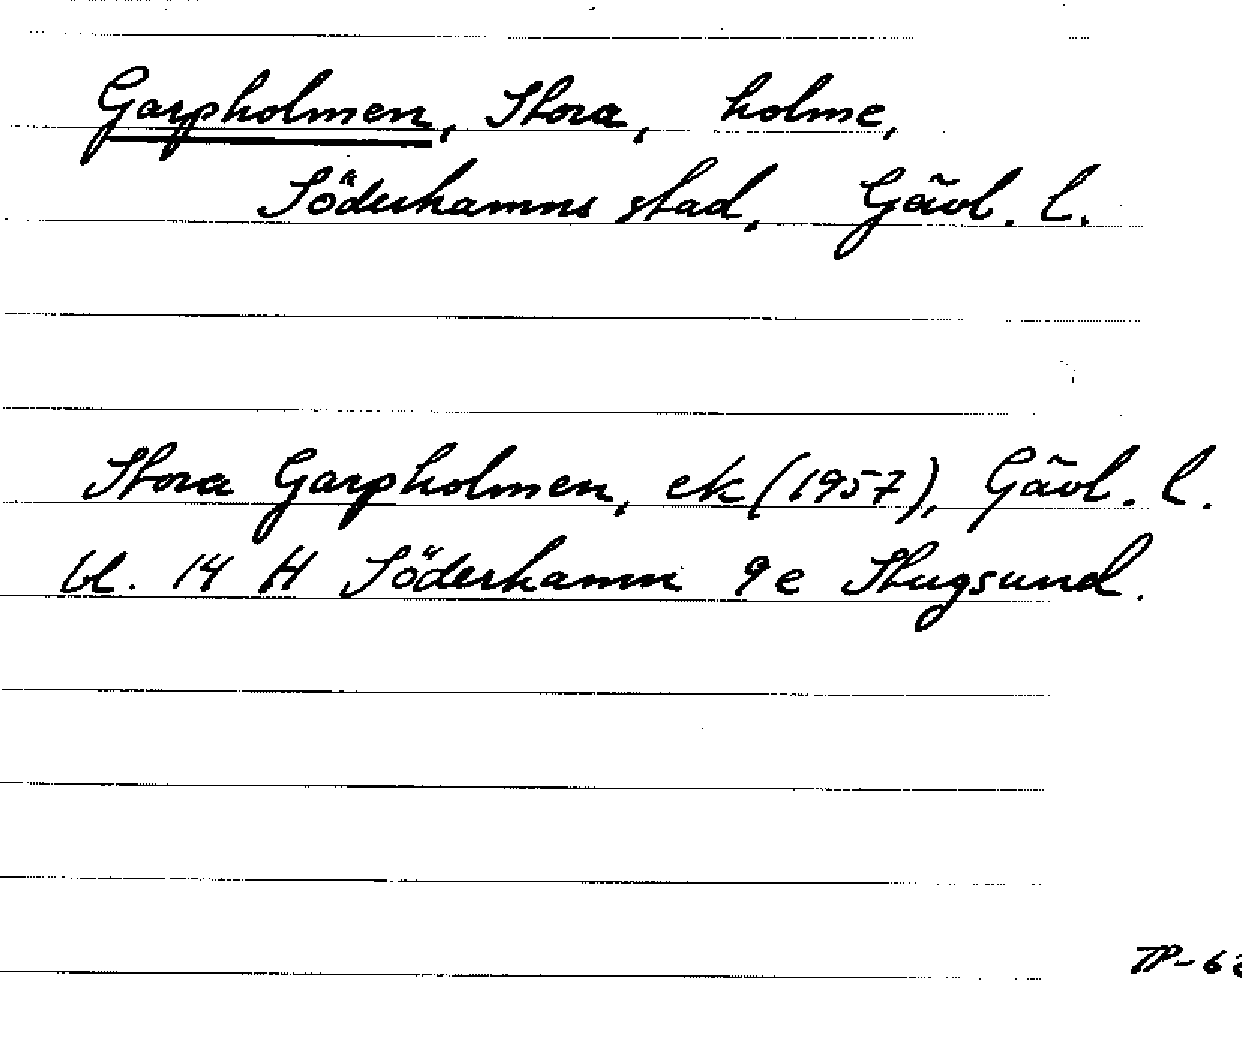 Garpholmen, Stora, holme,
Söderhamns stad, Gävl. l.
Stora Garpholmen, ek (1957), Gävl. l.
bl. 14 H Söderhamn 9e Stugsund.